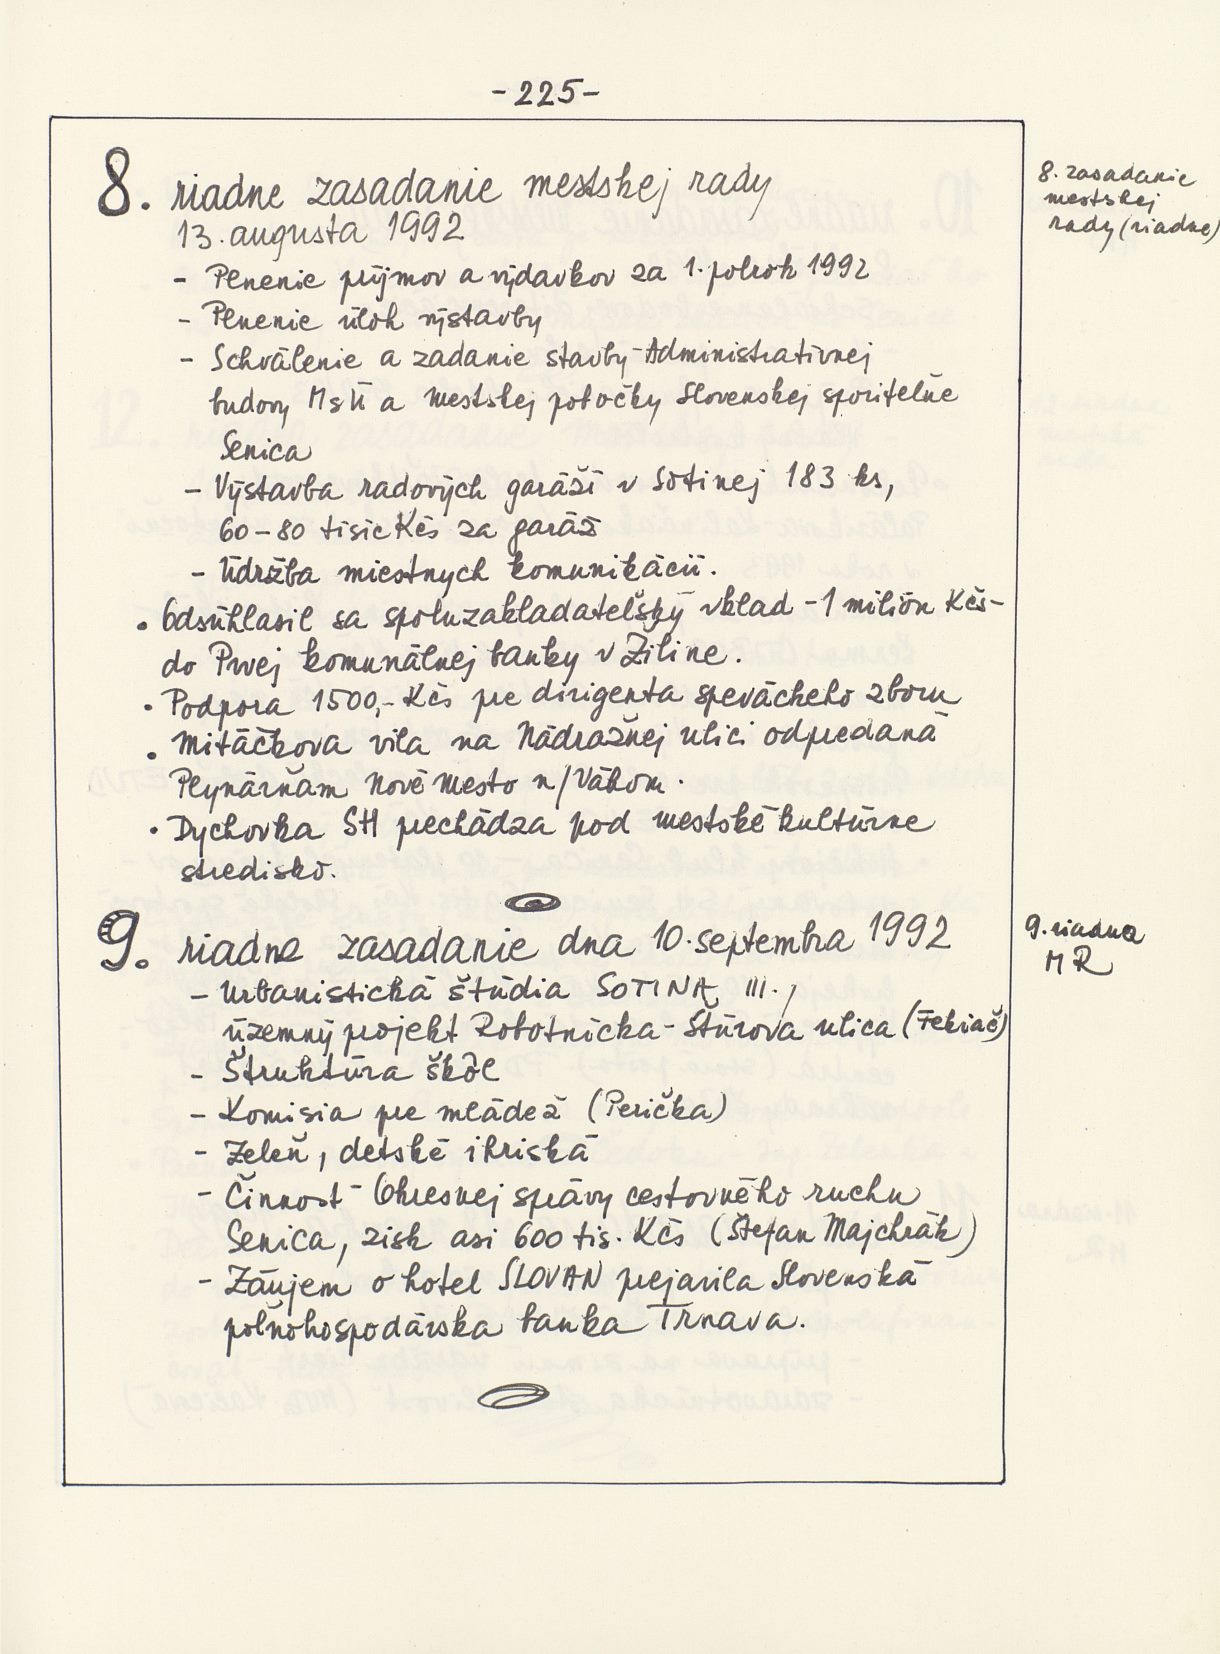 -225-
8. riadne zasadanie mestskej rady
13. augusta 1992
8. zasadanie
mestskej
rady (riadne)
- Plnenie príjmov a výdavkov za 1. polrok 1992
- Plnenie úloh výstavby
- Schválenie a zadanie stavby Administratívnej
budovy MsÚ a mestskej pobočky Slovenskej sporiteľne
Senica
- Výstavba radových garáží v Sotinej 183 ks,
60-80 tisíc Kčs za garáž
- Údržba miestnych komunikácií.
• Odsúhlasil sa spoluzakladateľský vklad -1 milión Kčs-
do Prvej komunálnej banky v Žiline.
• Podpora 1500,- Kčs pre dirigenta speváckeho zboru
• Mitáčkova vila na Nádražnej ulici odpredaná
Plynárňam Nové Mesto n/Váhom.
• Dychovka SH prechádza pod mestské kultúrne
stredisko.
9. riadne zasadanie dna 10. septembra 1992
9. riadna
MR
- Urbanistická štúdia SOTINA III.,
územný projekt Robotnícka - Štúrova ulica (Fekiač)
- Štruktúra škôl
- Komisia pre mládež (Perička)
- Zeleň, detské ihriská
- Činnosť Okresnej správy cestovného ruchu
Senica, zisk asi 600 tis. Kčs (Štefan Majchrák)
- Záujem o hotel SLOVAN prejavila Slovenská
poľnohospodárska banka Trnava.